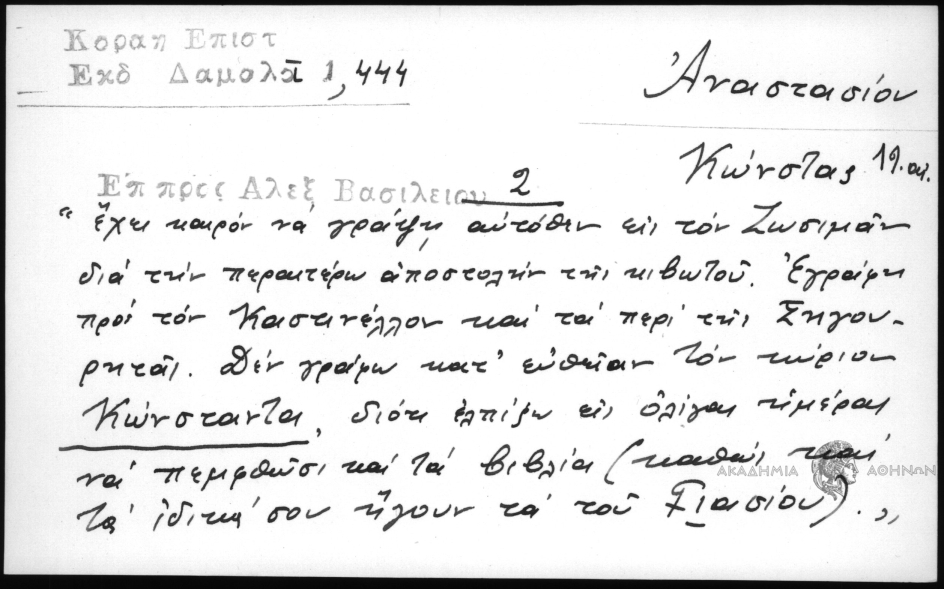 Κοραη Επιστ
Εκδ Δαμαλᾶ 1,444
Ἀναστασίου
Κώνστας 19. αι.
Επ προς Αλεξ Βασιλειου 2
" ἔχει καιρόν νά γράψῃ αὐτόθεν εἰς τόν Ζωσιμᾶν
διά τήν περαιτέρω ἀποστολήν τῆς κιβωτοῦ. Ἐγράφη
πρός τόν Καστινέλλον καί τά περί τῆς Σιγου-
ριτᾶς. Δέν γράφω κατ' εὐθεῖαν τόν κύριον
Κώνσταντα, διότι ἐλπίζω εἰς ὀλίγας ἡμέρας
νά πεμφθῶσι καί τά βιβλία (καθώς καί
τά ἰδικά σου ἤγουν τά τοῦ Γιασίου). „
ΑΚΑΔΗΜΙΑ ΑΘΗΝΩΝ